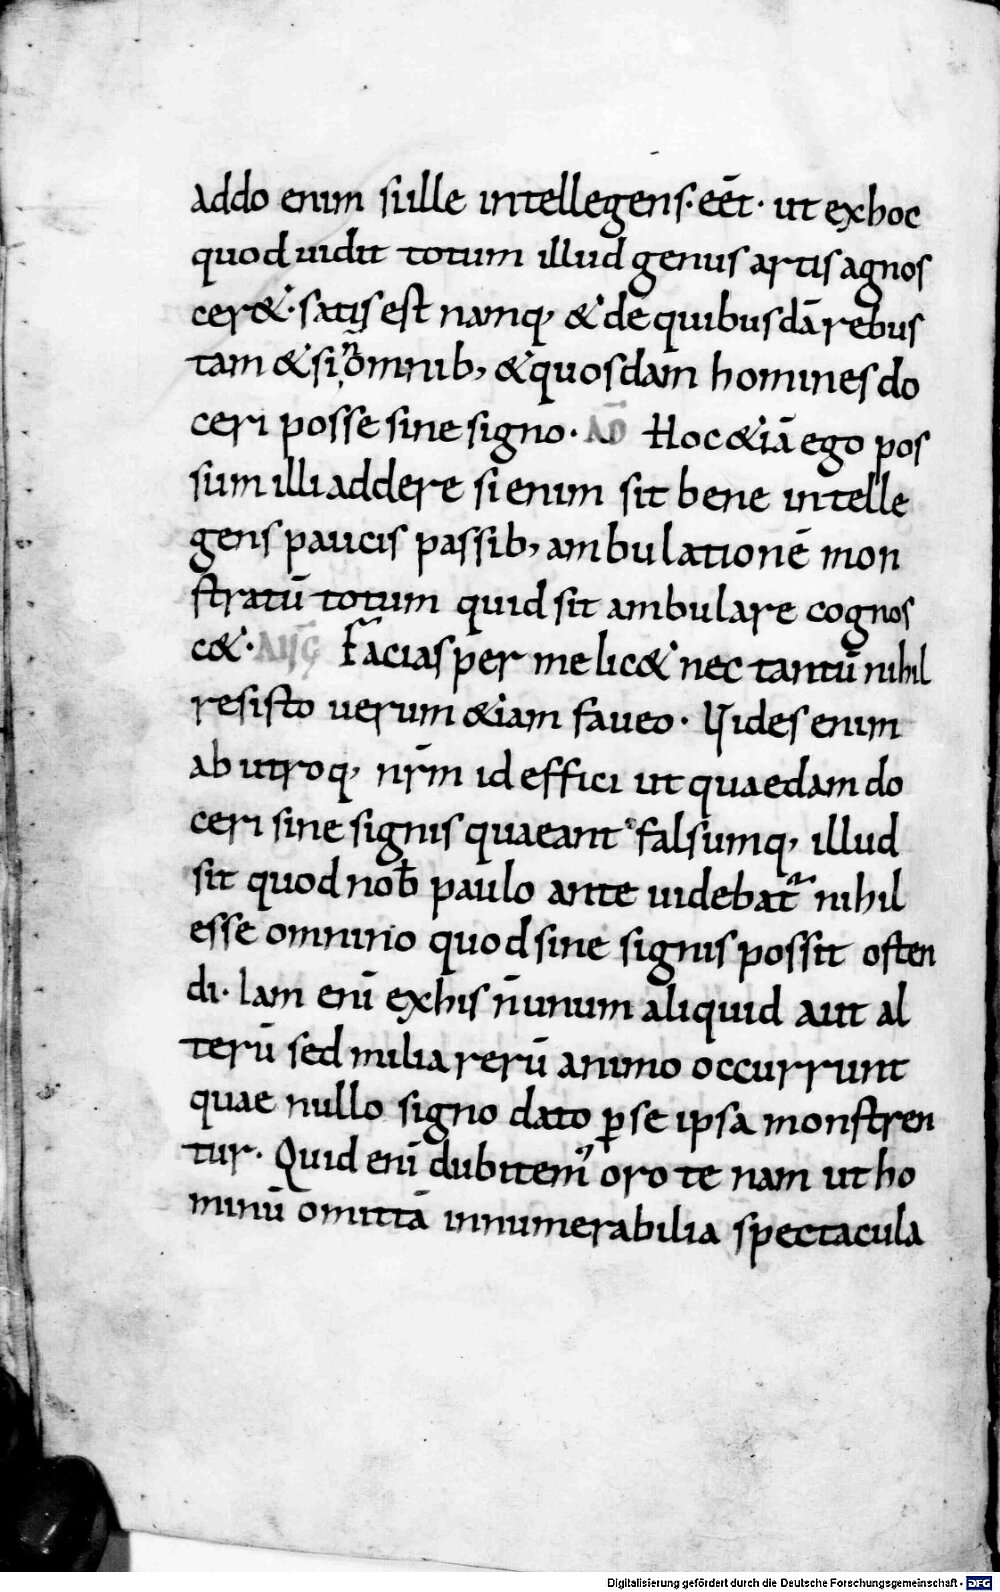 addo enim si ille intellegens · eēt · ut ex hoc
quod uidit totum illud genus artis agnos
cer& · satis est namq, & de quibusdā rebus
tam &si n̄ omnib, & quosdam homines do
ceri posse sine signo · AD̄ Hoc &iā ego pos
sum illi addere si enim sit bene intelle
gens paucis passib, ambulationē mon
stratū totum quid sit ambulare cognos
c& · AUḠ Facias per me lic& nec tantū nihil
resisto uerum &iam faueo · Uides enim
ab utroq, nr̄m id effici ut quaedam do
ceri sine signis quaeant falsumq, illud
sit quod nob̄ paulo ante uidebat̄ nihil
esse omnino quod sine signis possit osten
di · Iam enī ex his n̄ unum aliquid aut al
terū sed milia rerū animo occurrunt
quae nullo signo dato ꝑ se ipsa monstren
tur · Quid enī dubitem' oro te nam ut ho
minū omittā innumerabilia spectacula
Digitalisierung gefördert durch die Deutsche Forschungsgemeinschaft - DFG